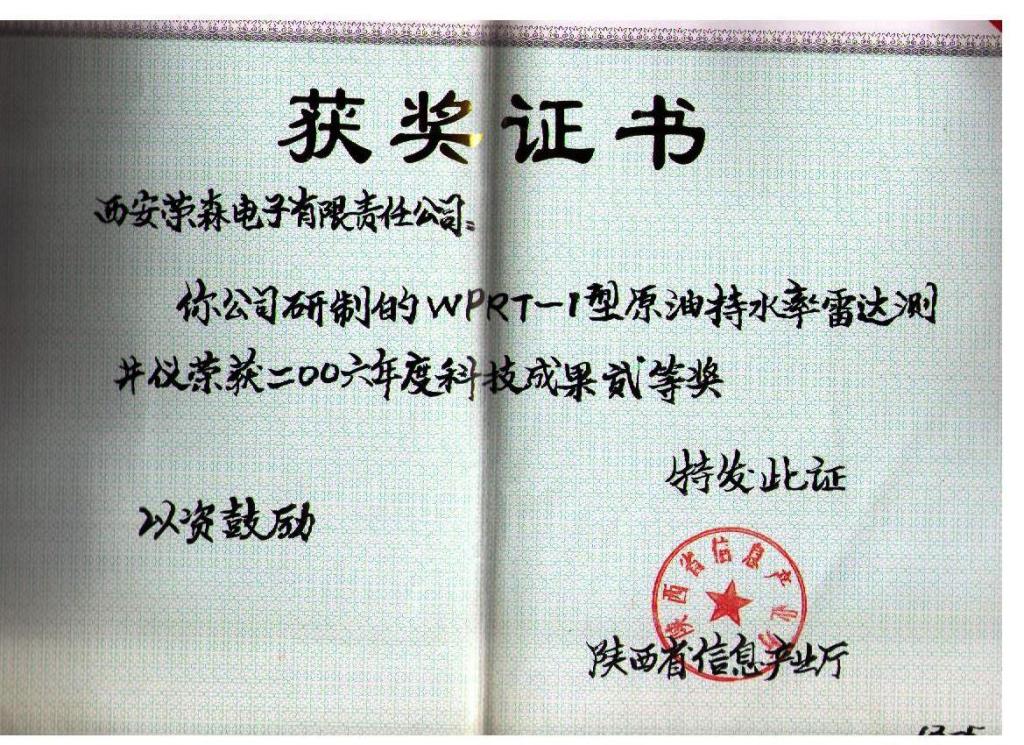 获奖证书
西安荣森电子有限责任公司：
你公司研制的WPRT-1型原油持水率雷达测
井仪荣获二00六年度科技成果贰等奖
特发此证
以资鼓励
陕西省信息产业厅
陕西省信息产业厅